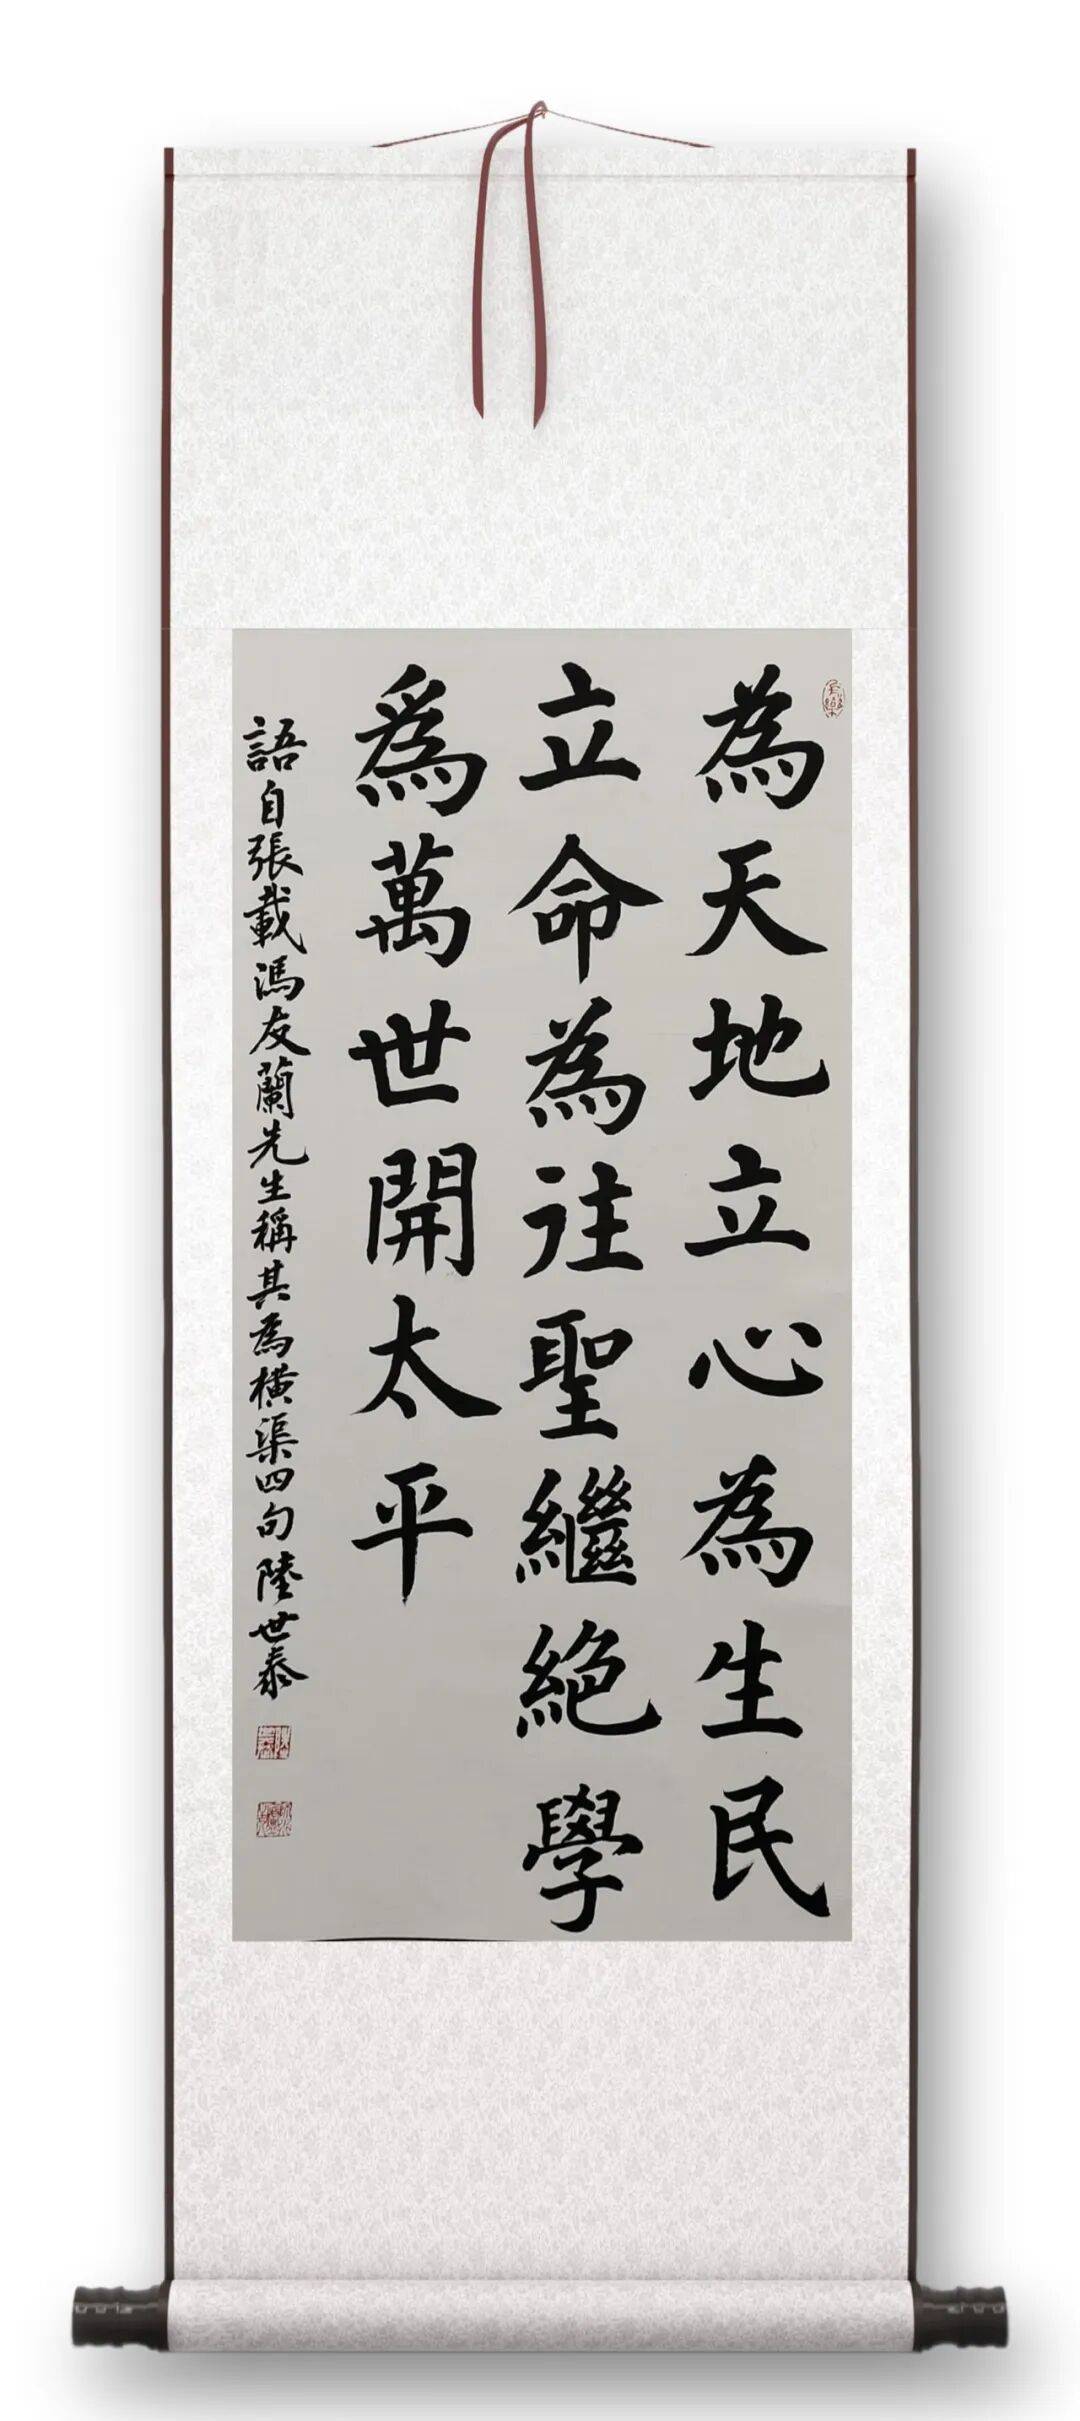 為天地立心為生民
立命為往聖繼絶學
爲萬世開太平
語自張載馮友蘭先生稱其為橫渠四句陸世泰